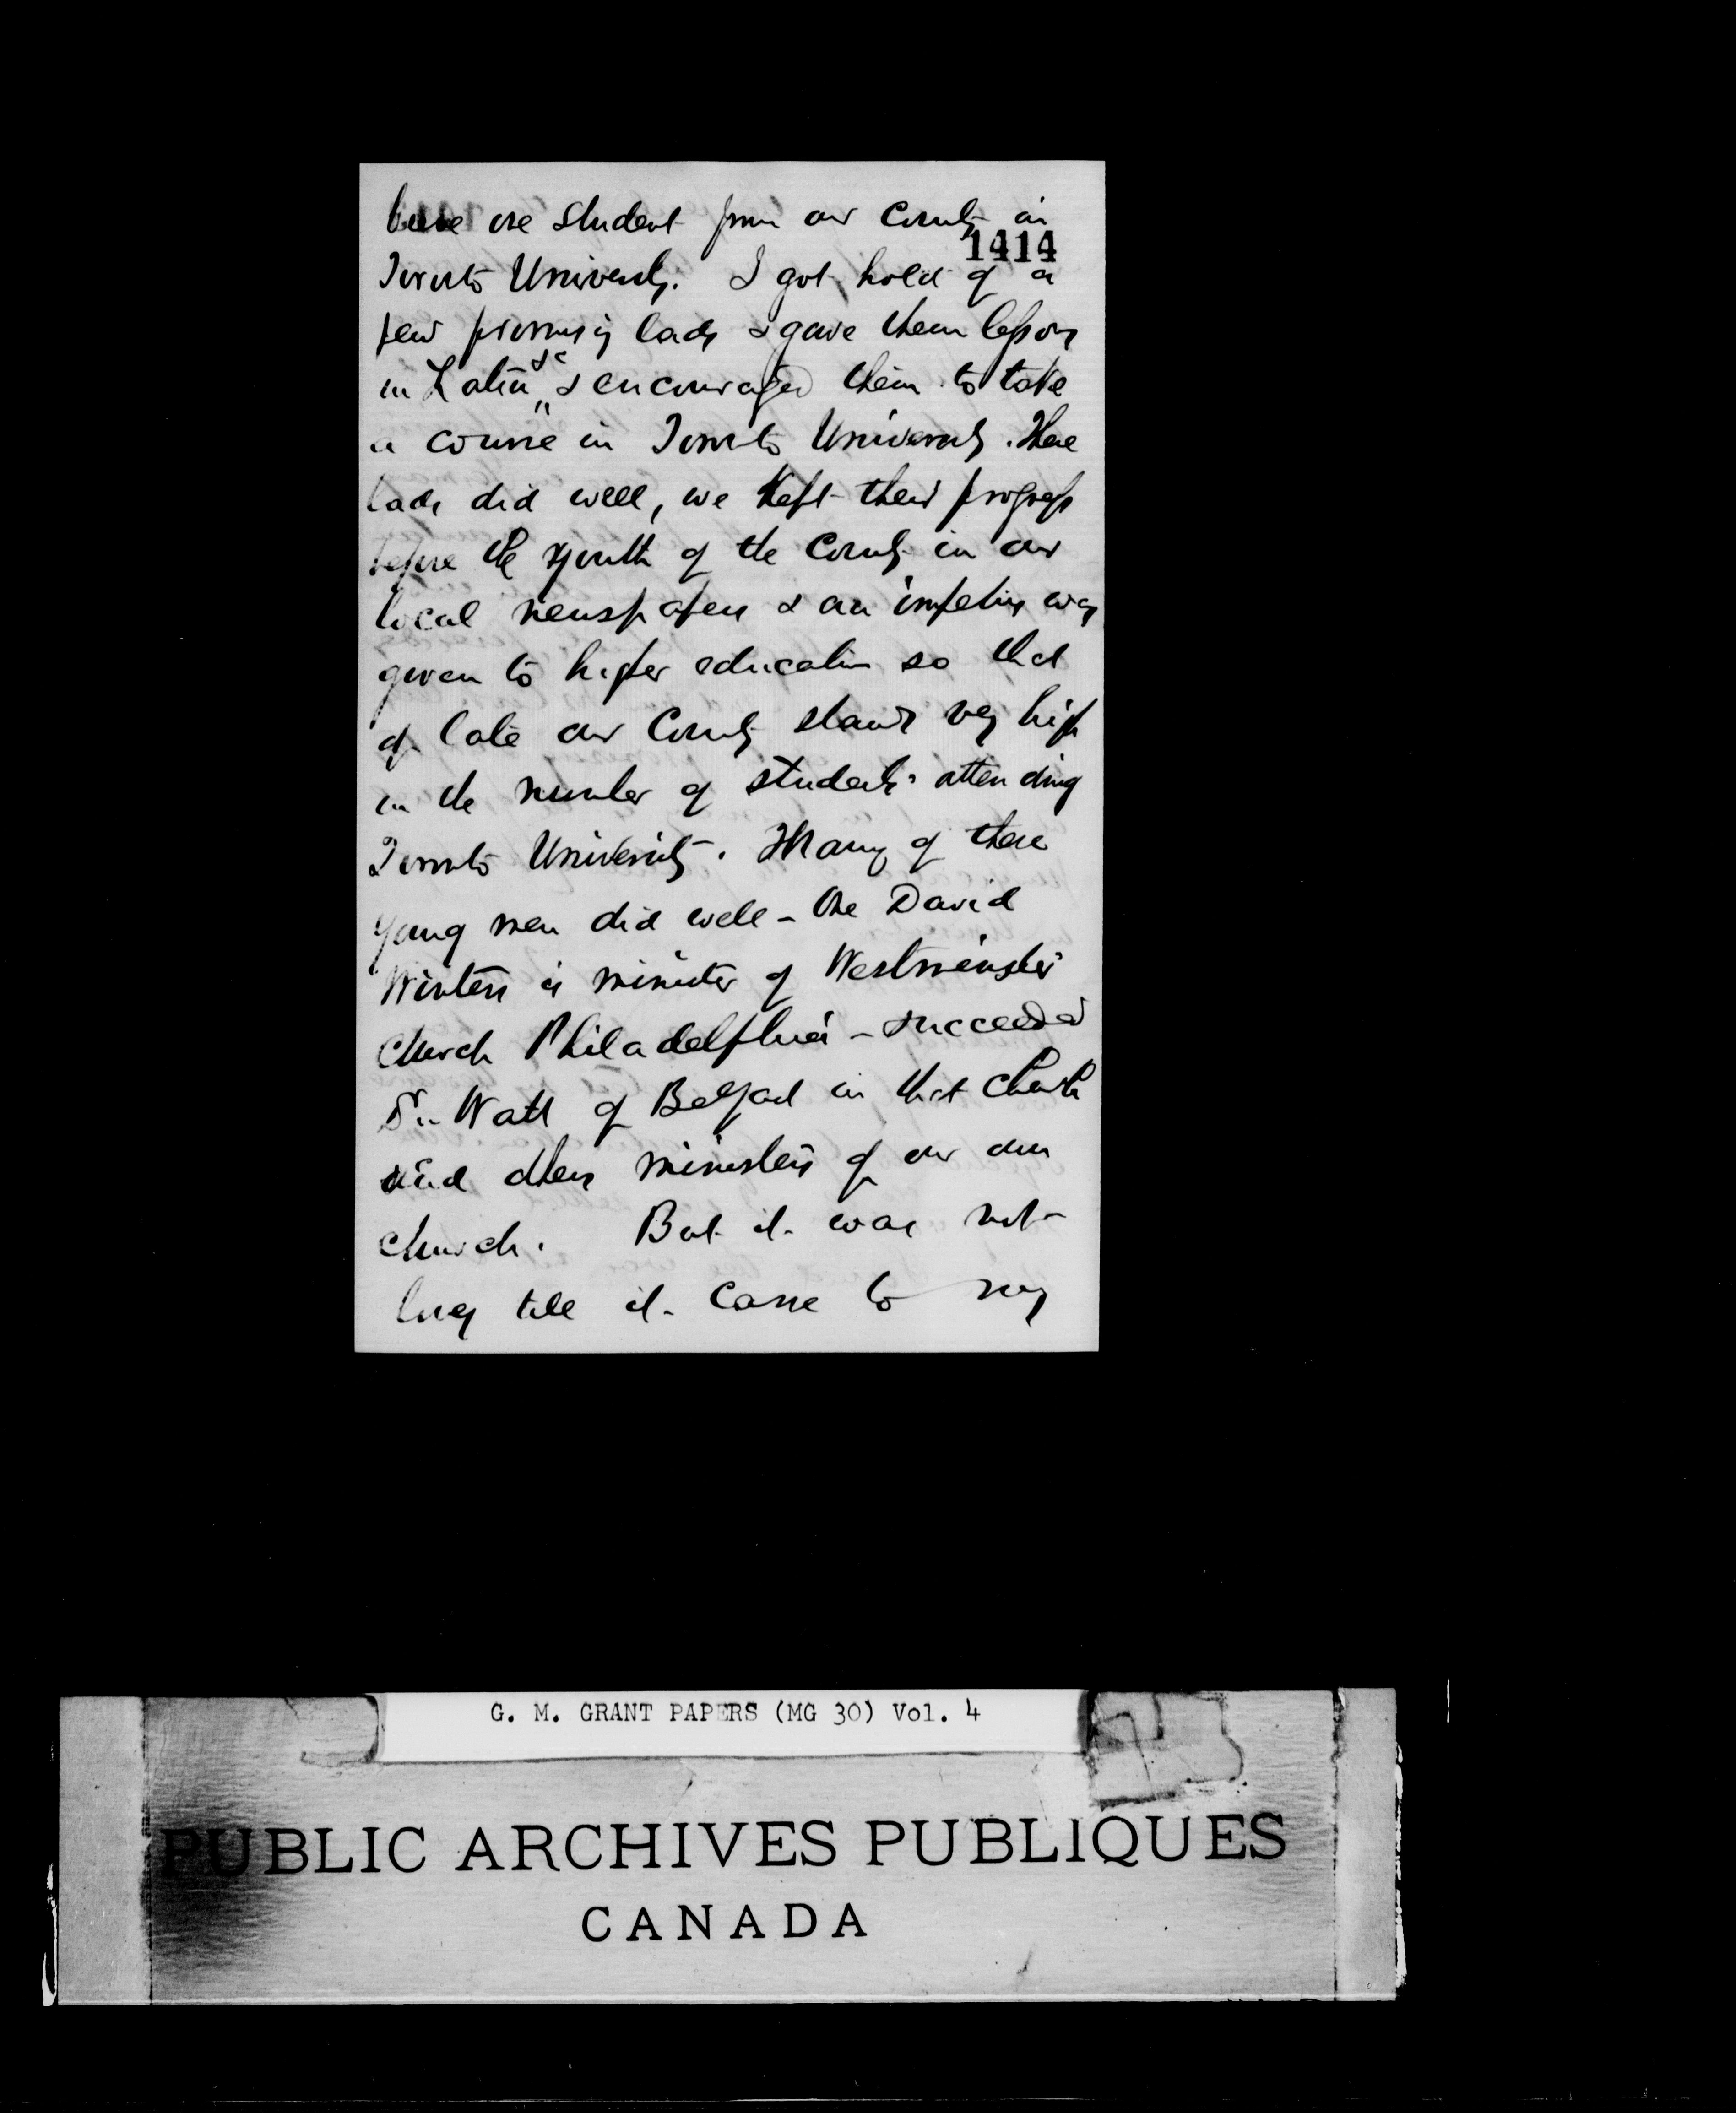 one student from our County in
1414
Toronto University. I got hold of a
few promising lads & gave them lessons
in Latin &c & encouraged them to take
a course in Toronto University. These
lads did well, we kept their progress
before the youth of the County in our
local newspapers & an impetus was
given to higher education so that
of late our County stands very high
in the number of students attending
Toronto University. Many of these
young men did well - One David
is minister of Westminster
Church Philadelphia - succeeded
Dr. Watt of Belfast in that Church
and others ministers of our own
church. But it was not
long till it came to my
G. M. GRANT PAPERS (MG 30) Vol. 4
PUBLIC ARCHIVES PUBLIQUES
CANADA